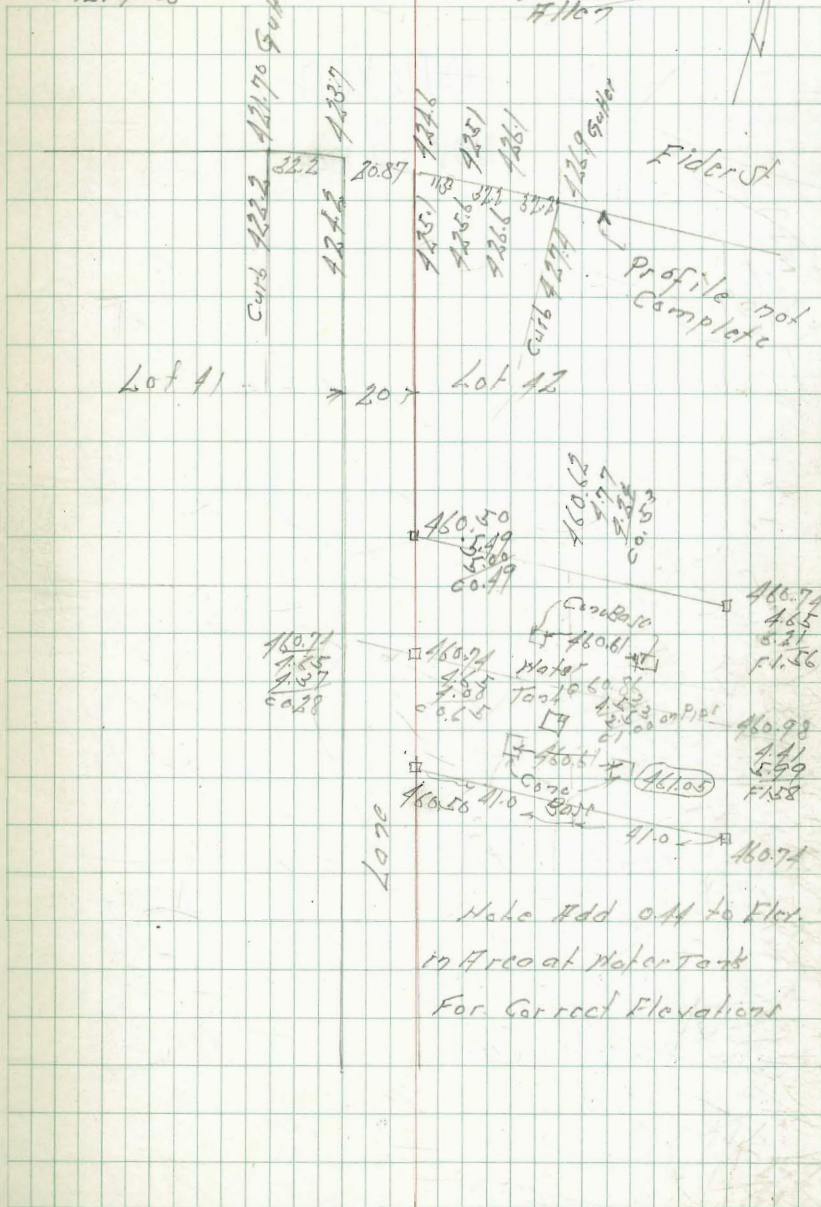 Allen
421.70 Gutt
423.7
424.6
425.1
426.1
426.9 Gutter
Eider St
32.2
20.87
32.2
Curb 422.2
424.2
425.1
425.6
426.6
Curb 427.4
Profile not
Complete
Lot 41
20
Lot 42
460.50
5.49
5.00
C0.49
460.62
4.77
460.74
4.65
6.21
F1.56
Conc Base
460.61
460.74
4.65
4.37
C0.28
460.74
4.65
4.00
C0.65
Water
Tank
460.86
4.53
on Pier
460.98
4.41
5.99
F1.58
460.61
Conc
Base
461.05
460.50
41.0
41.0
460.74
Lane
Note Add 0.44 to Elev.
in Area at Water Tank
For Correct Elevations